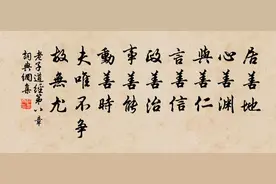 居善地
心善渊
與善仁
言善信
政善治
事善能
動善時
夫唯不争
故無尤
老子道經第八章
詞典網集